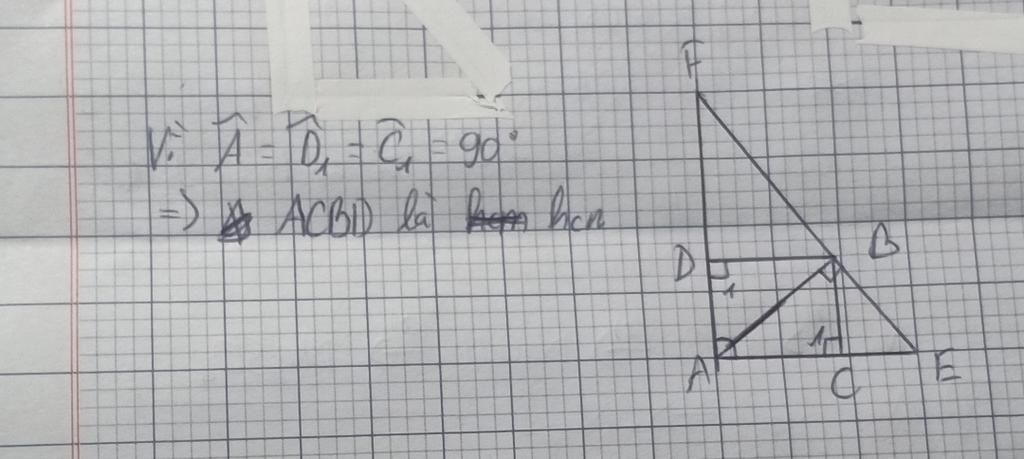 Vì Â = D̂₁ = Ĉ₁ = 90°
=> ACBD là hcn
F
D
B
1
1
A
C
E